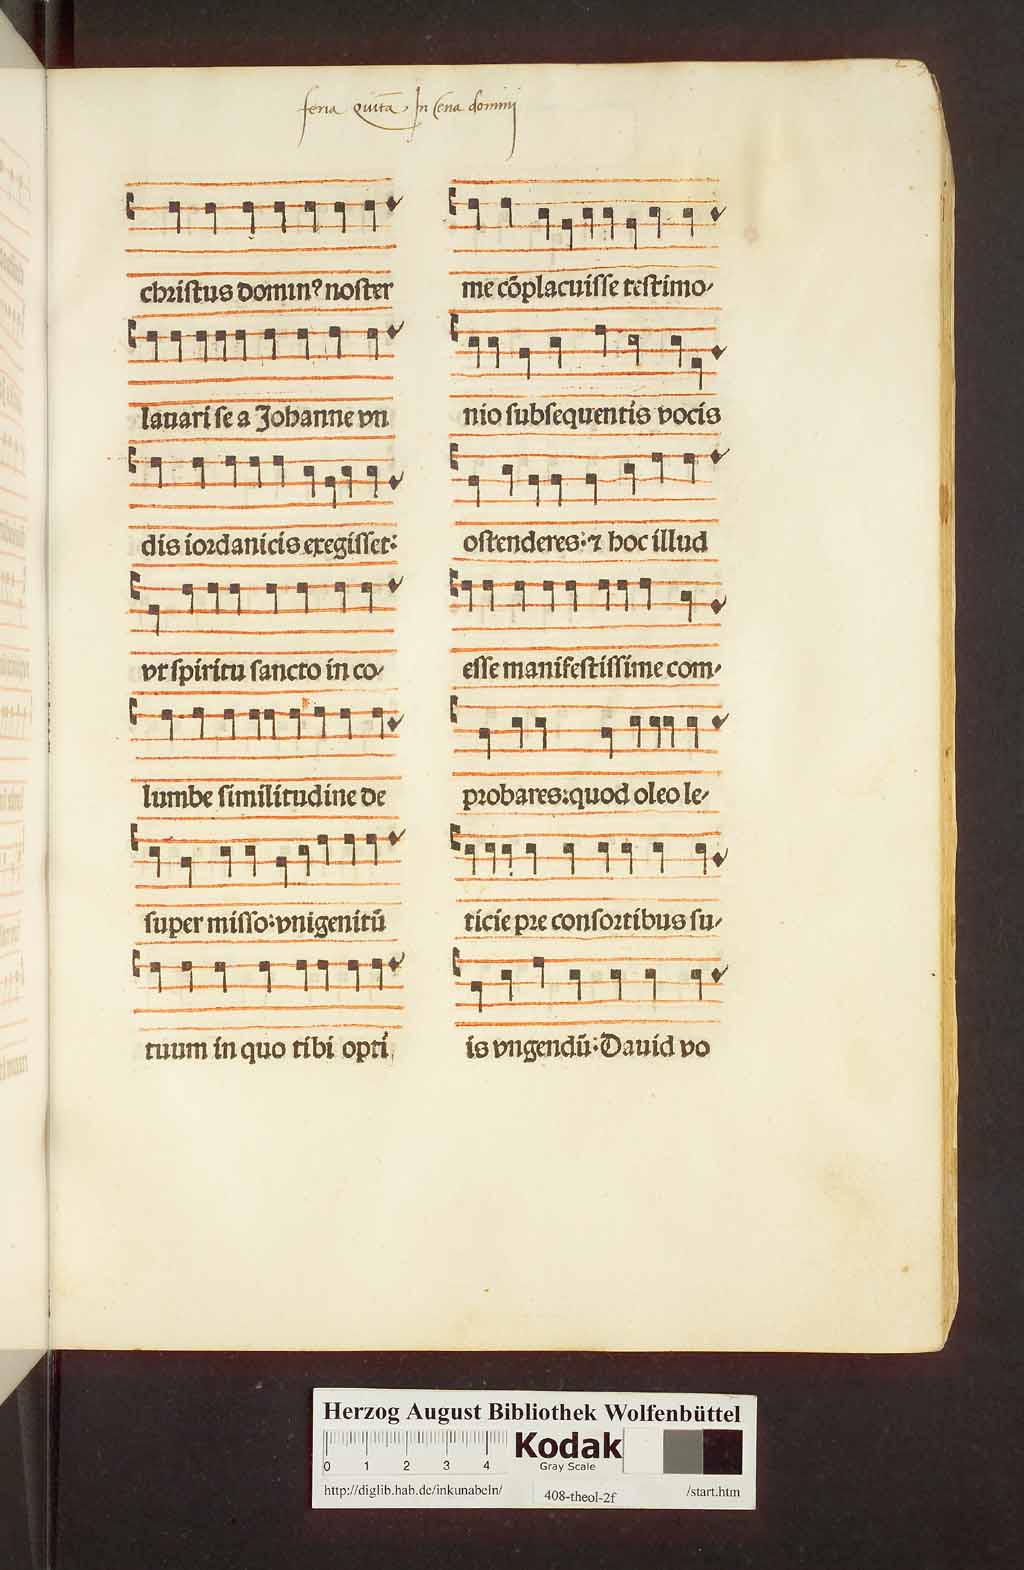 feria Qui̅ta In Cena domini
christus domin⁹ noster
lauari se a Johanne vn
dis iordanicis exegisset:
vt spiritu sancto in co-
lumbe similitudine de
super misso: vnigenitū
tuum in quo tibi opti
me cōplacuisse testimo-
nio subsequentis vocis
ostenderes: ⁊ hoc illud
esse manifestissime com-
probares: quod oleo le-
ticie pre consortibus su-
is vngendū: Dauid vo
Herzog August Bibliothek Wolfenbüttel
0 1 2 3 4
Kodak
Gray Scale
http://diglib.hab.de/inkunabeln/ 408-theol-2f /start.htm